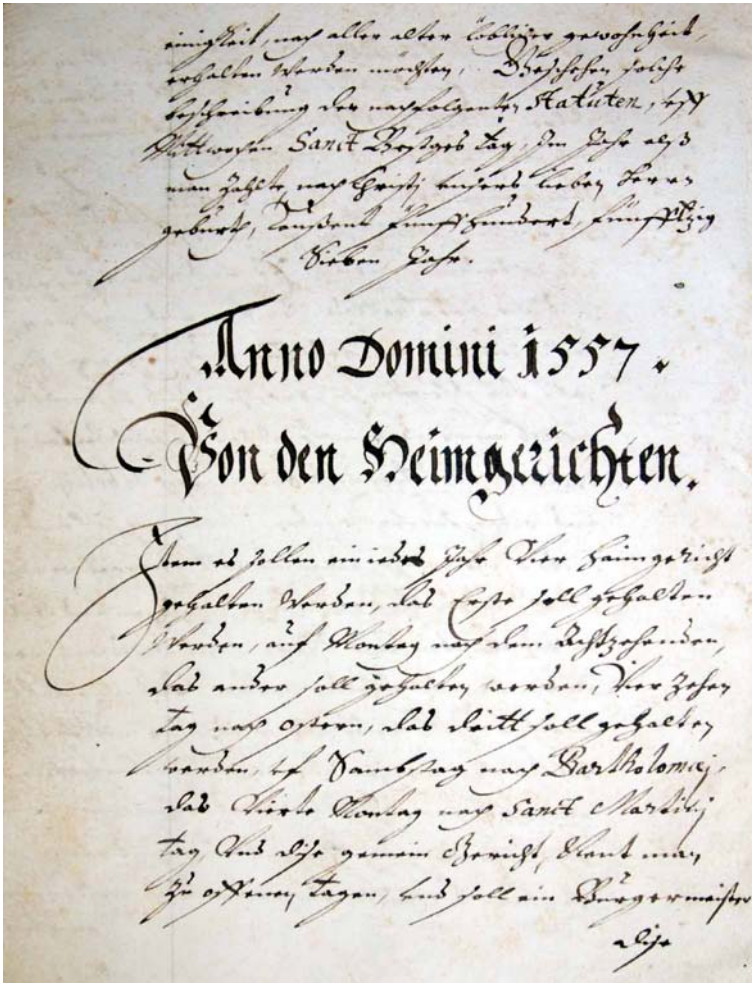 einigkeit, nach aller alter löblicher gewohnheit,
erhalten werden möchten, Geschehen solche
beschreibung der nachfolgenten Statuten, uff
Mittwochen Sanct tag, Im Jahr alß
man Zahlte nach Christi unsers lieben Herrn
geburth, Tausent fünffhundert, fünfftzig
Sieben Jahr.
Anno Domini 1557.
Von den Heimgerichten.
Item es sollen ein iedes Jahr Vier haimgericht
gehalten werden, das Erste soll gehalten
werden, auf Montag nach dem Achtzehenden,
das ander soll gehalten werden, Vierzehen
tag nach ostern, das dritt soll gehalten
werden, uf Sambstag nach Bartholomej,
das Vierte Montag nach Sanct Martinj
tag, Und dise gemein Gericht, Nent man
Zu offenen tagen, und soll ein Burgermeister
dise